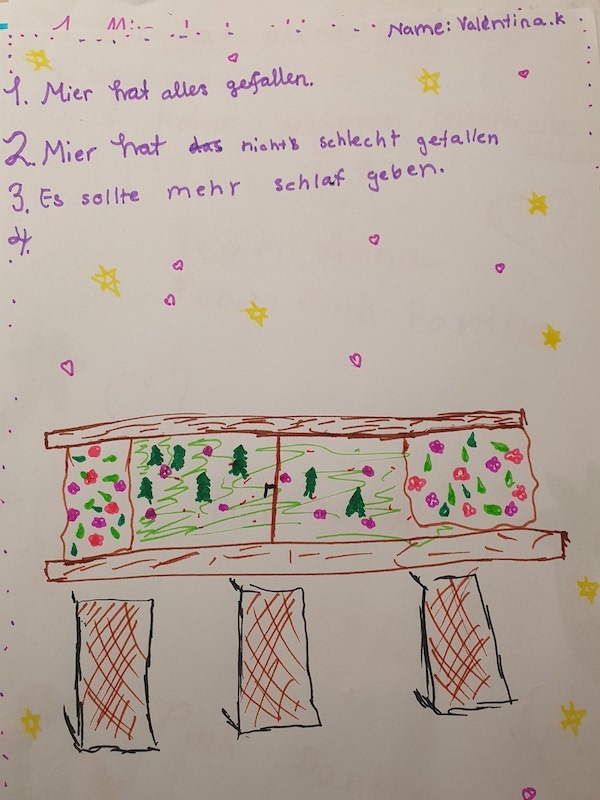 Name: Valentina.k
1. Mier hat alles gefallen.
2. Mier hat das nichts schlecht gefallen
3. Es sollte mehr schlaf geben.
4.